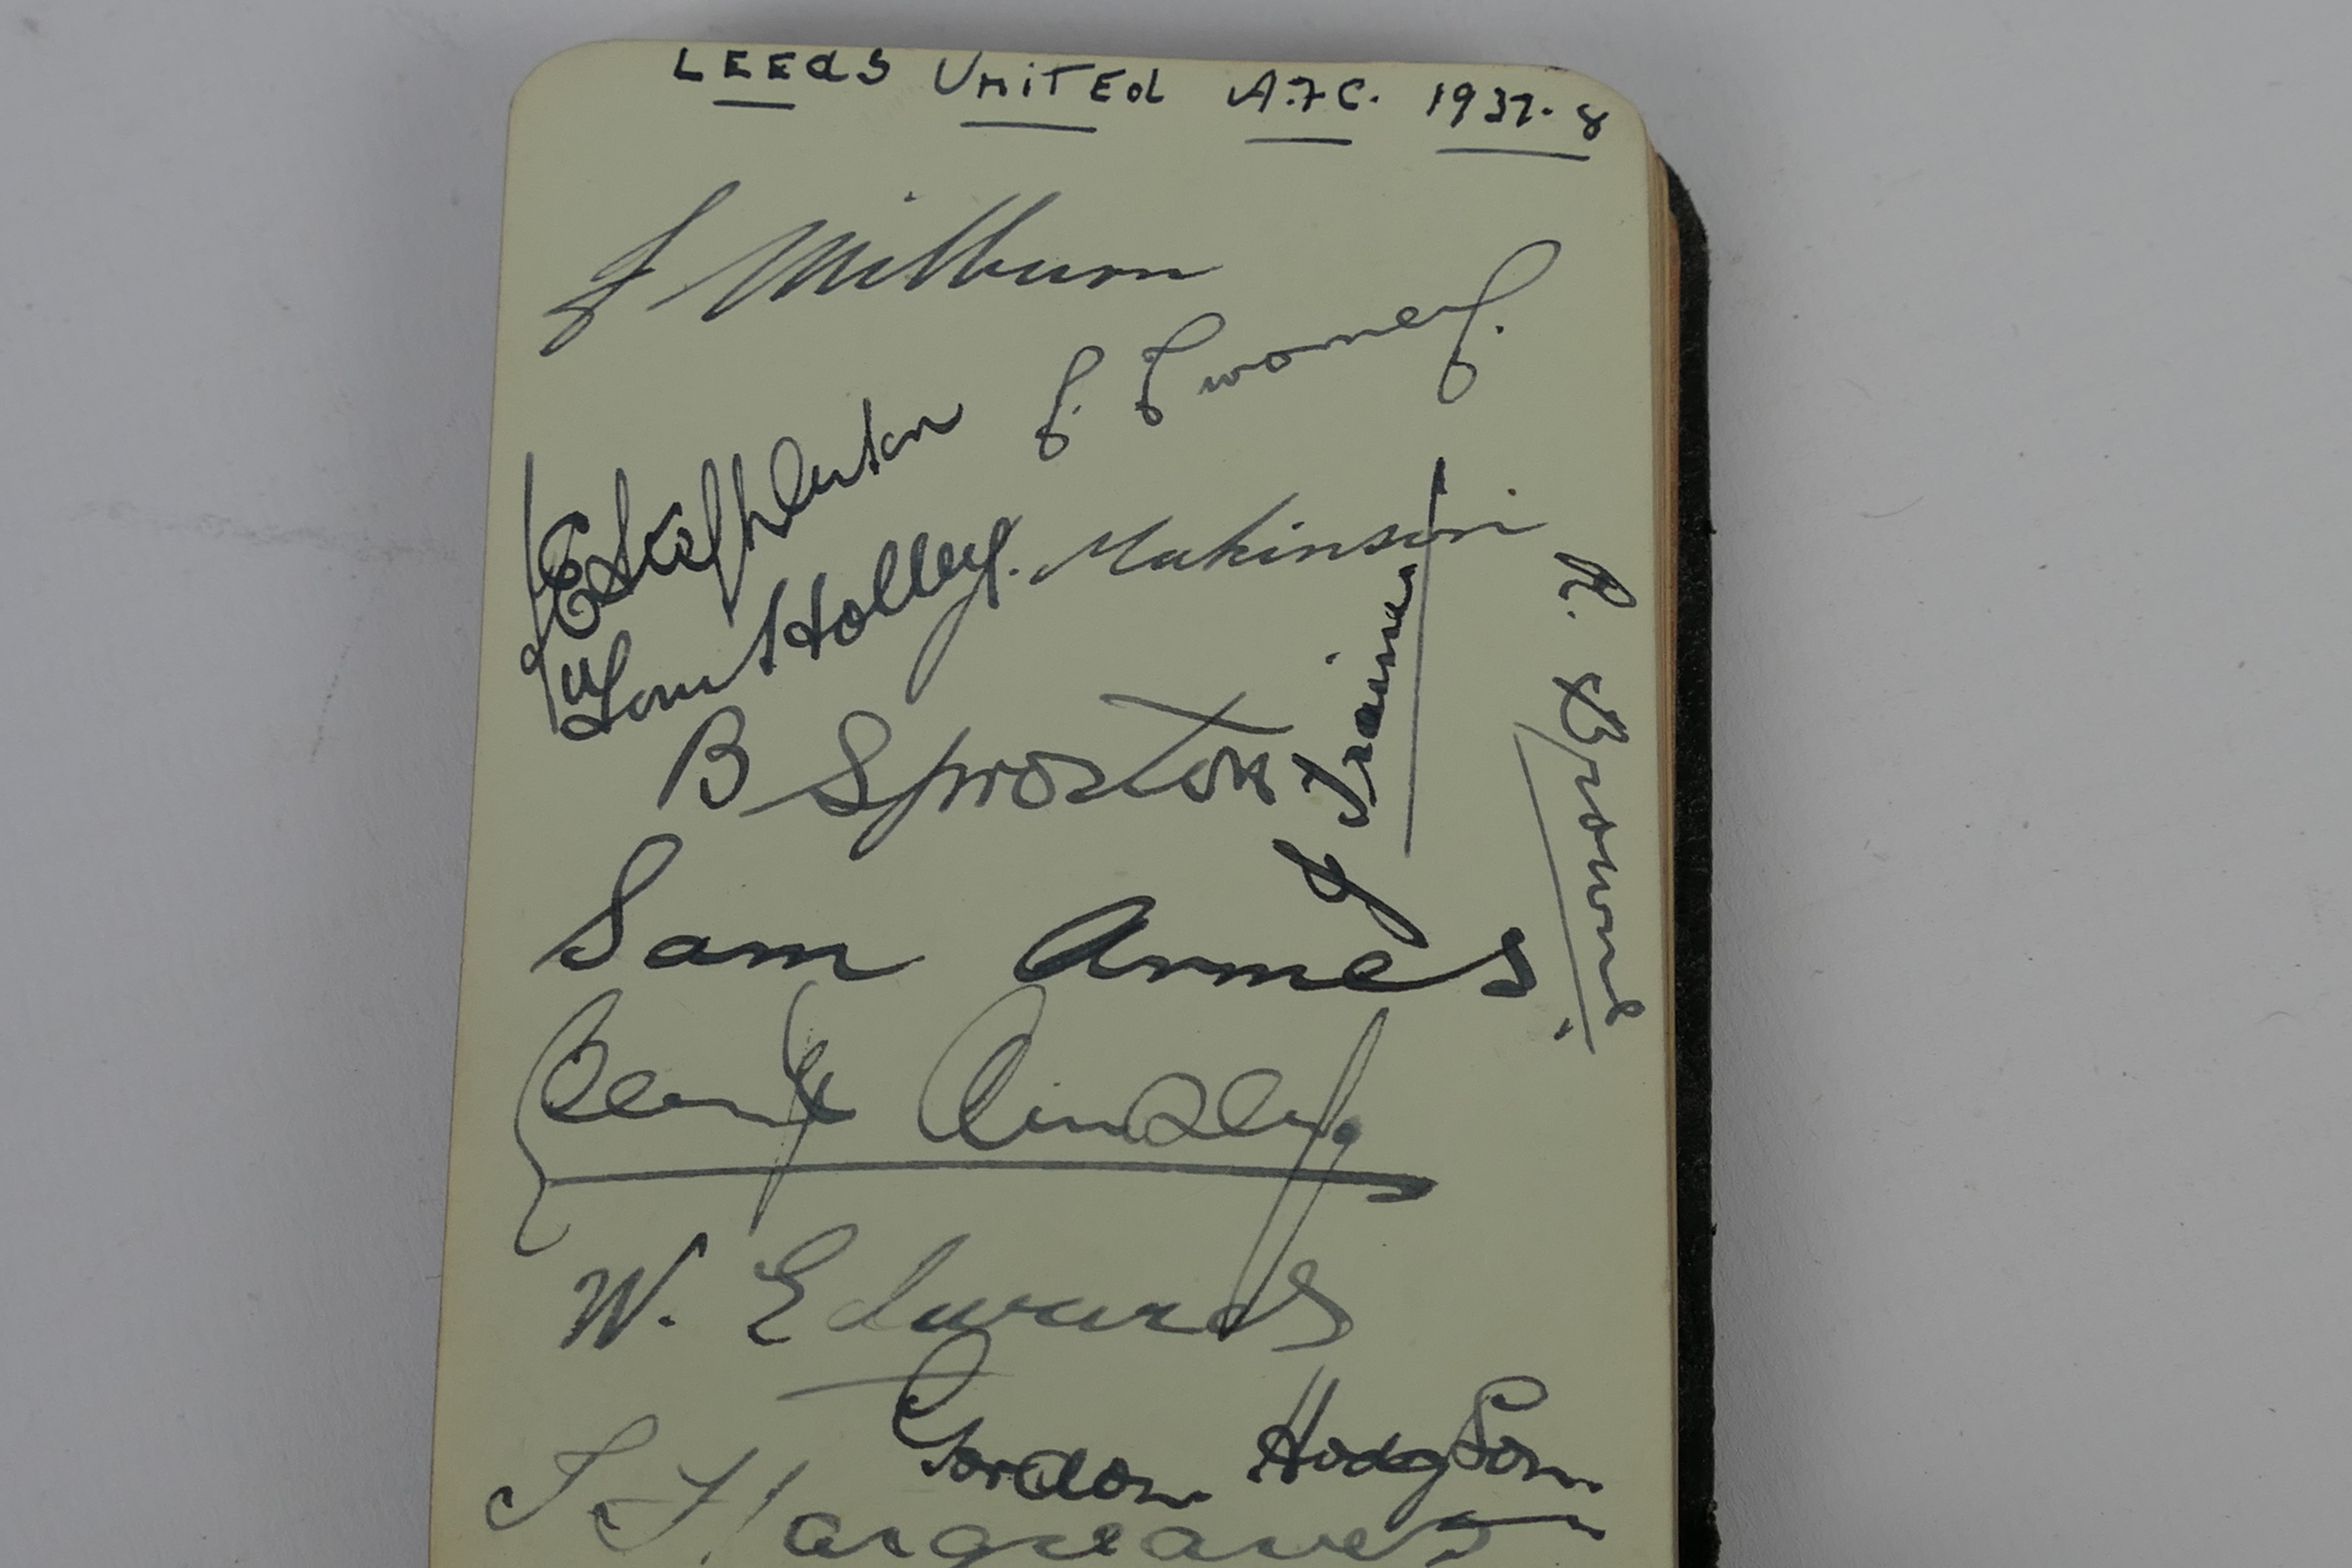 LEEdS UNiTEd A.F.C. 1937-8
J Milburn
E Stephenson
Tom Holley.
Makinson
B Sproston
J Trainor
R. Browne
Sam Armes
W. Edwards
Gordon Hodgson
J Hargreaves